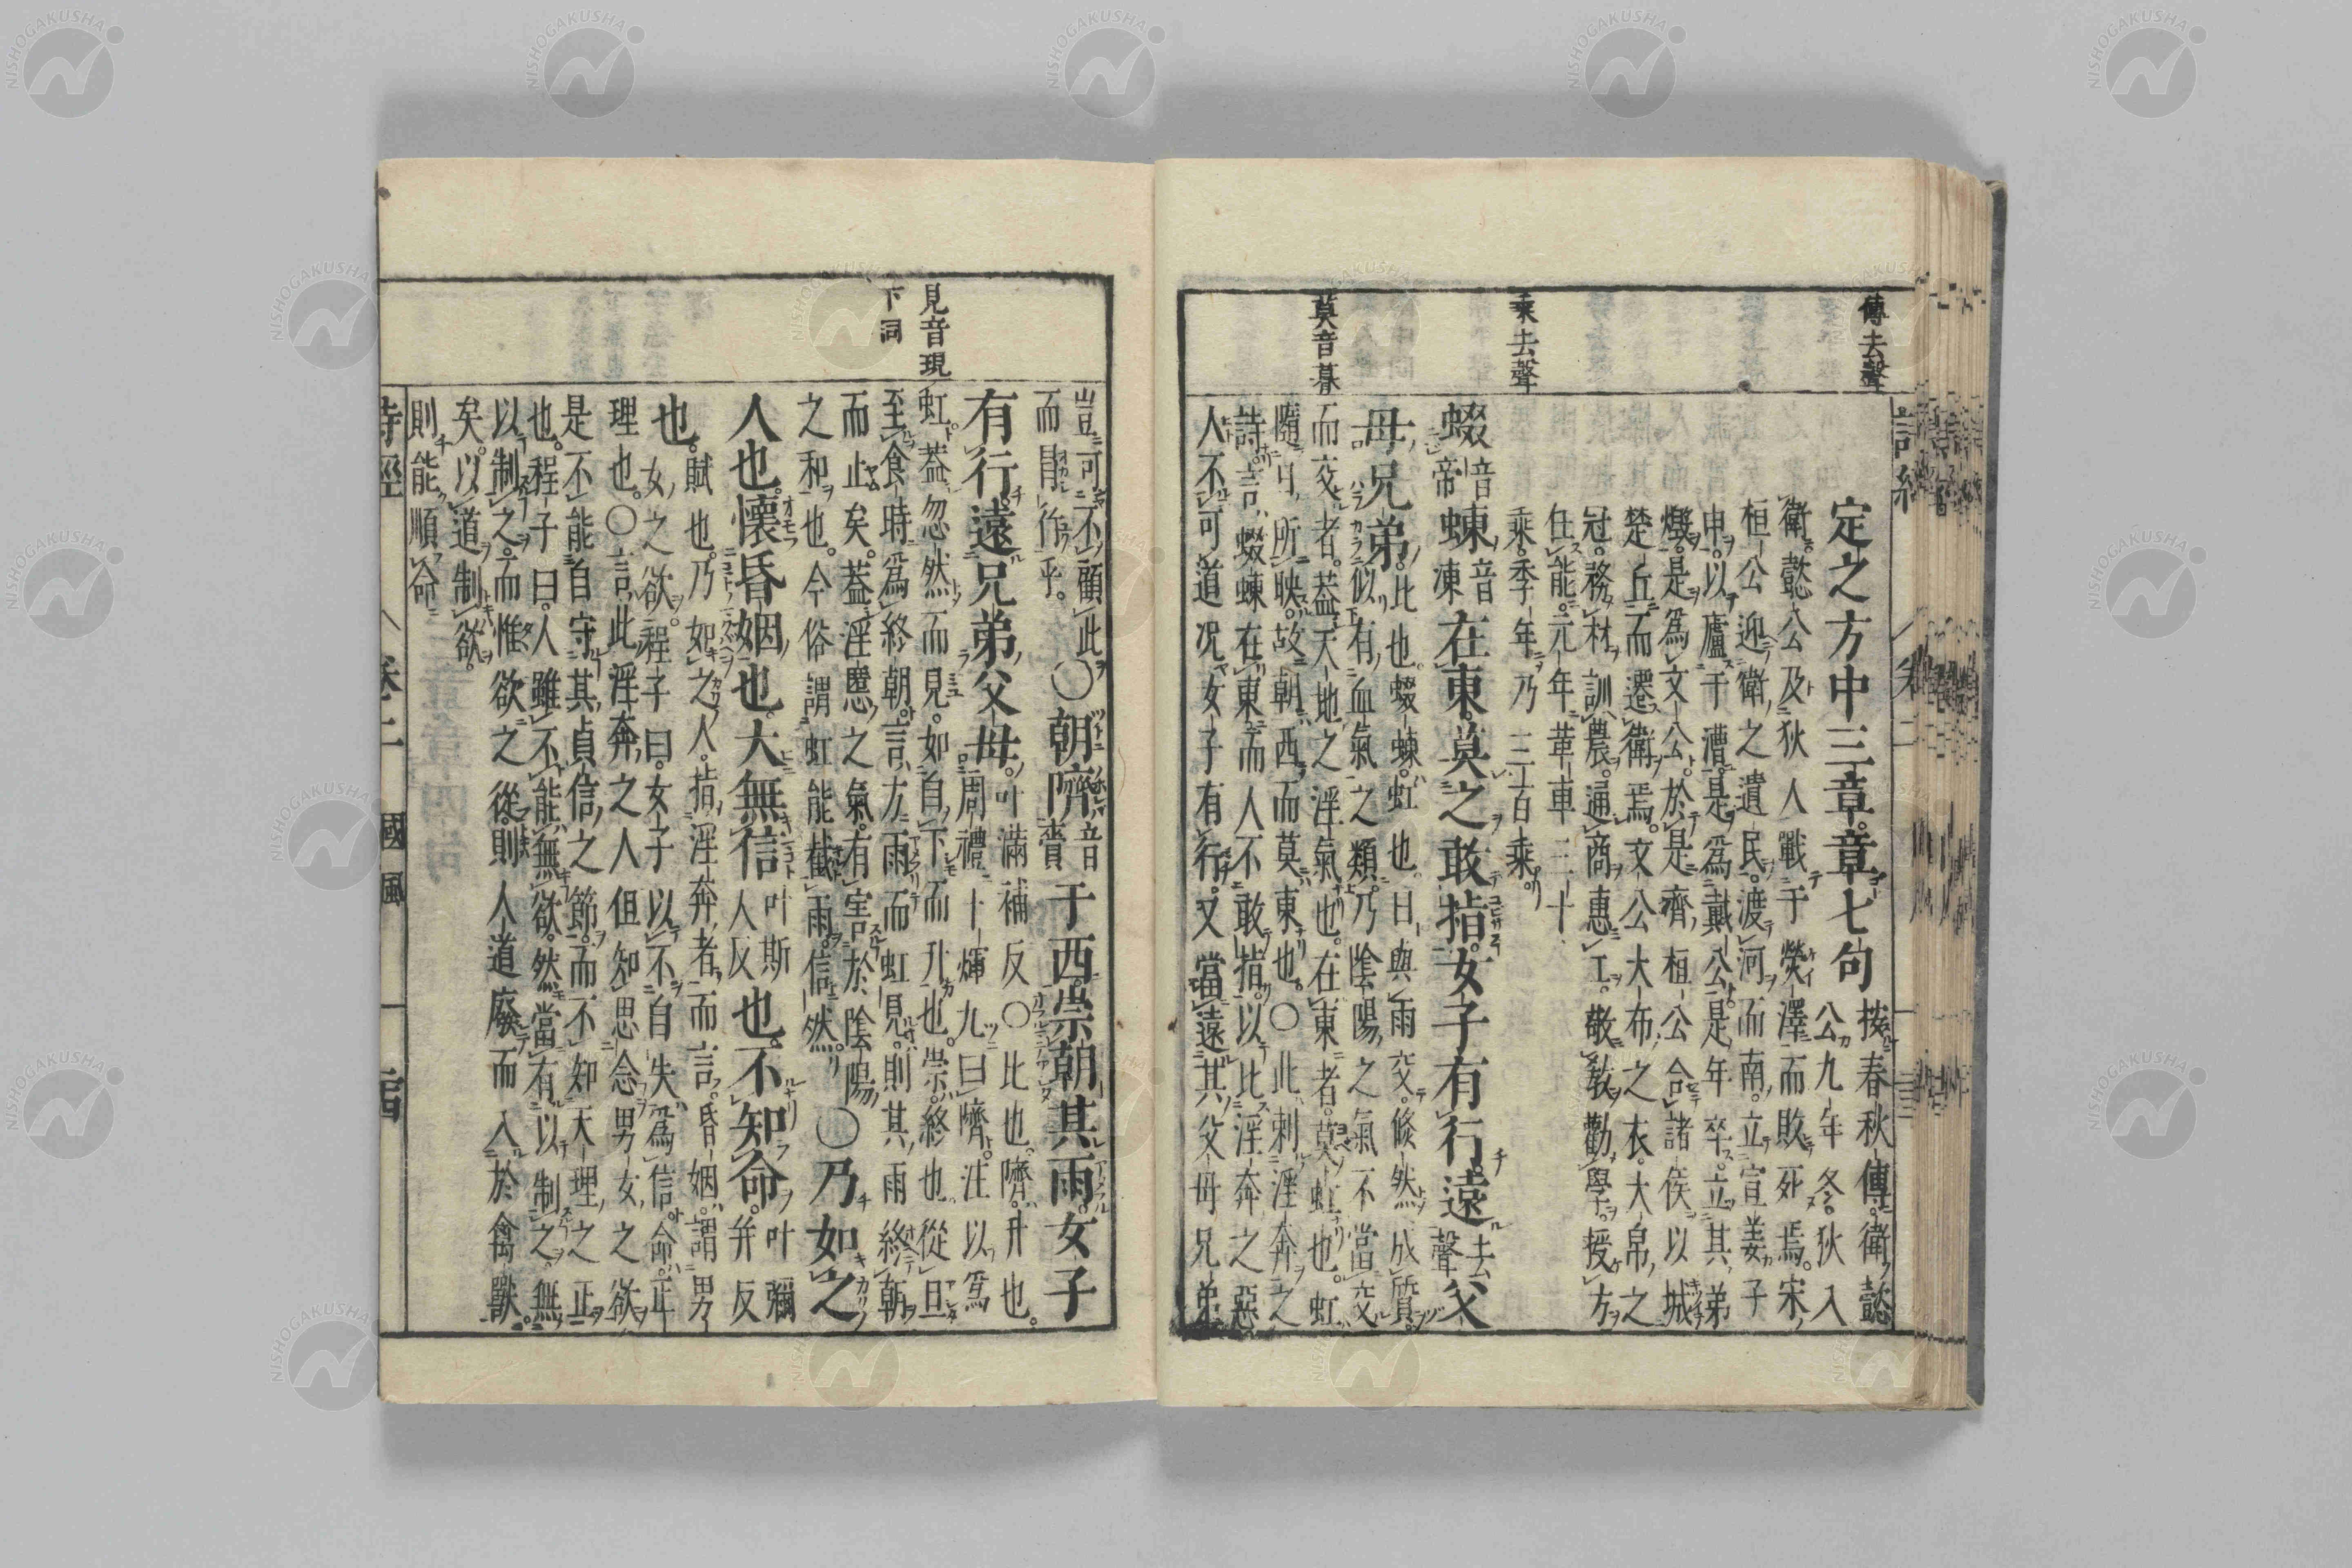 傳去聲
乘去聲
莫音暮
定之方中三章章七句 按春秋傳衛懿
公九年冬狄入
衛懿公及狄人戰于熒澤而敗死焉宋
桓公迎衛之遺民渡河而南立宣姜子
申以廬于漕是爲戴公是年卒立其弟
燬是爲文公於是齊桓公合諸侯以城
楚丘而遷衛焉文公大布之衣大帛之
冠務材訓農通商惠工敬教勸學授方
任能元年革車三十
乘季年乃三百乘
蝃音帝蝀音凍在東莫之敢指女子有行遠去聲父
母兄弟比也蝃蝀虹也日與雨交倏然成質
似有血氣之類乃陰陽之氣不當交
而交者蓋天地之淫氣也在東者莫虹也虹
隨日所映故朝西而莫東也○此刺淫奔之
詩言蝃蝀在東而人不敢指以比淫奔之惡
人不可道况女子有行又當遠其父母兄弟
見音現
下同
豈可不顧此
而冒行乎○朝隮音賷于西崇朝其雨女子
有行遠兄弟父母叶滿補反○比也隮升也
周禮十煇九曰隮註以爲
虹蓋忽然而見如自下而升也崇終也從旦
至食時爲終朝言方雨而虹見則其雨終朝
而止矣蓋淫慝之氣有害於陰陽
之和也今俗謂虹能截雨信然○乃如之
人也懷昏姻也大無信叶斯人反也不知命叶彌并反
也賦也乃如之人指淫奔者而言昏姻謂男
女之欲程子曰女子以不自失爲信命正
理也○言此淫奔之人但知思念男女之欲
是不能自守其貞信之節而不知天理之正
也程子曰人雖不能無欲然當有以制之無
以制之而惟欲之從則人道廢而入於禽獸
矣以道制欲
則能順命
詩經
國風